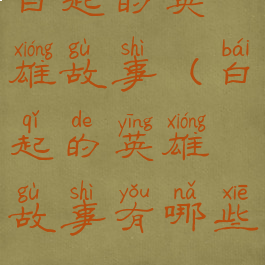 白起的英
xióng gù shì bái
雄故事(白
qǐ de yīng xióng
起的英雄
gù shì yǒu nǎ xiē
故事有哪些